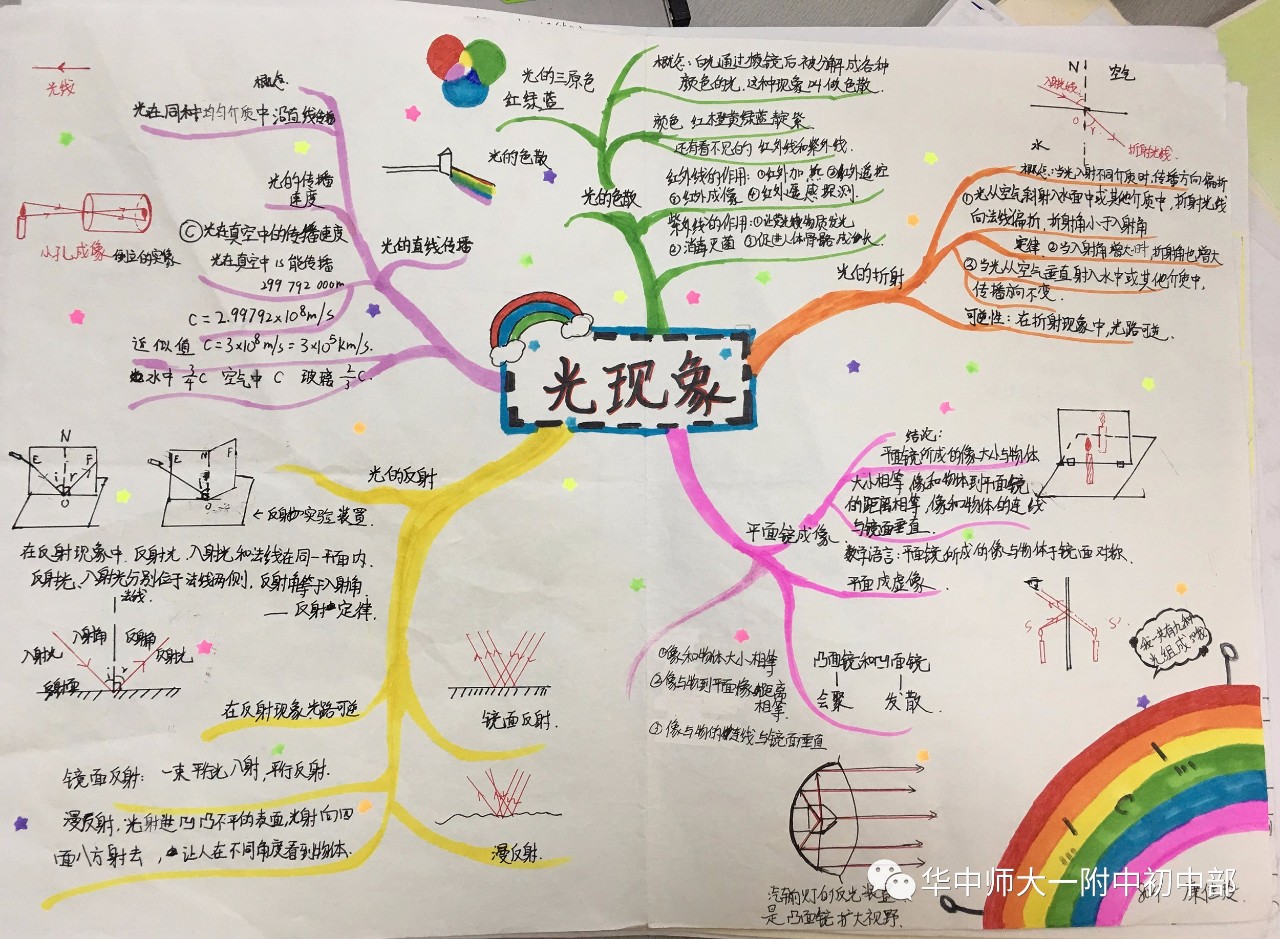 光现象
光线
概念:
光在同种均匀介质中沿直线传播
光的传播
速度
Ⓒ光在真空中的传播速度
光在真空中1s能传播
299 792 000m
C=2.99792×10⁸m/s
近似值 C=3×10⁸m/s=3×10⁵km/s.
水中 3/4C 空气中 C 玻璃 2/3C.
小孔成像 倒立的实像
光的直线传播
光的三原色
红绿蓝
光的色散
光的色散
概念:白光通过棱镜后被分解成各种
颜色的光,这种现象叫做色散.
颜色 红橙黄绿蓝靛紫
还有看不见的 红外线和紫外线.
红外线的作用:①红外加热 ②红外遥控
③红外成像 ④红外遥感探测.
紫外线的作用:①让荧光物质发光
②消毒灭菌 ③促进人体骨骼成份长
N
空气
入射光线
O
r
水
折射光线.
光的折射
概念:当光入射不同介质时,传播方向偏折
①光从空气斜射入水面中或其他介质中,折射光线
向法线偏折,折射角小于入射角
定律 ②当入射角增大时 折射角也增大
③当光从空气垂直射入水中或其他介质中,
传播方向不变.
可逆性:在折射现象中,光路可逆.
N
E
F
i
r
O
E
N
F
O
←反射实验装置.
光的反射
在反射现象中.反射光,入射光和法线在同一平面内.
反射光、入射光分别位于法线两侧,反射角等于入射角.
——反射定律.
法线.
入射光
入射角
反射角
反射光
i
r
反射面
在反射现象光路可逆
镜面反射.
镜面反射: 一束平行光入射,平行反射.
漫反射,光射进凹凸不平的表面,光射向四
面八方射去,让人在不同角度看到物体.
漫反射.
平面镜成像.
结论:
平面镜所成的像大小与物体
大小相等,像和物体到平面镜
的距离相等,像和物体的连线
与镜面垂直.
数学语言:平面镜所成的像与物体于镜面对称.
平面成虚像.
S
S'
①像和物体大小相等
②像与物到平面像的距离
相等.
③像与物的连线与镜面垂直
凹面镜和凸面镜
会聚 发散.
汽车灯的反光装置
是凹面镜 扩大视野.
我一共有九种
光组成的哦
华中师大一附中初中部